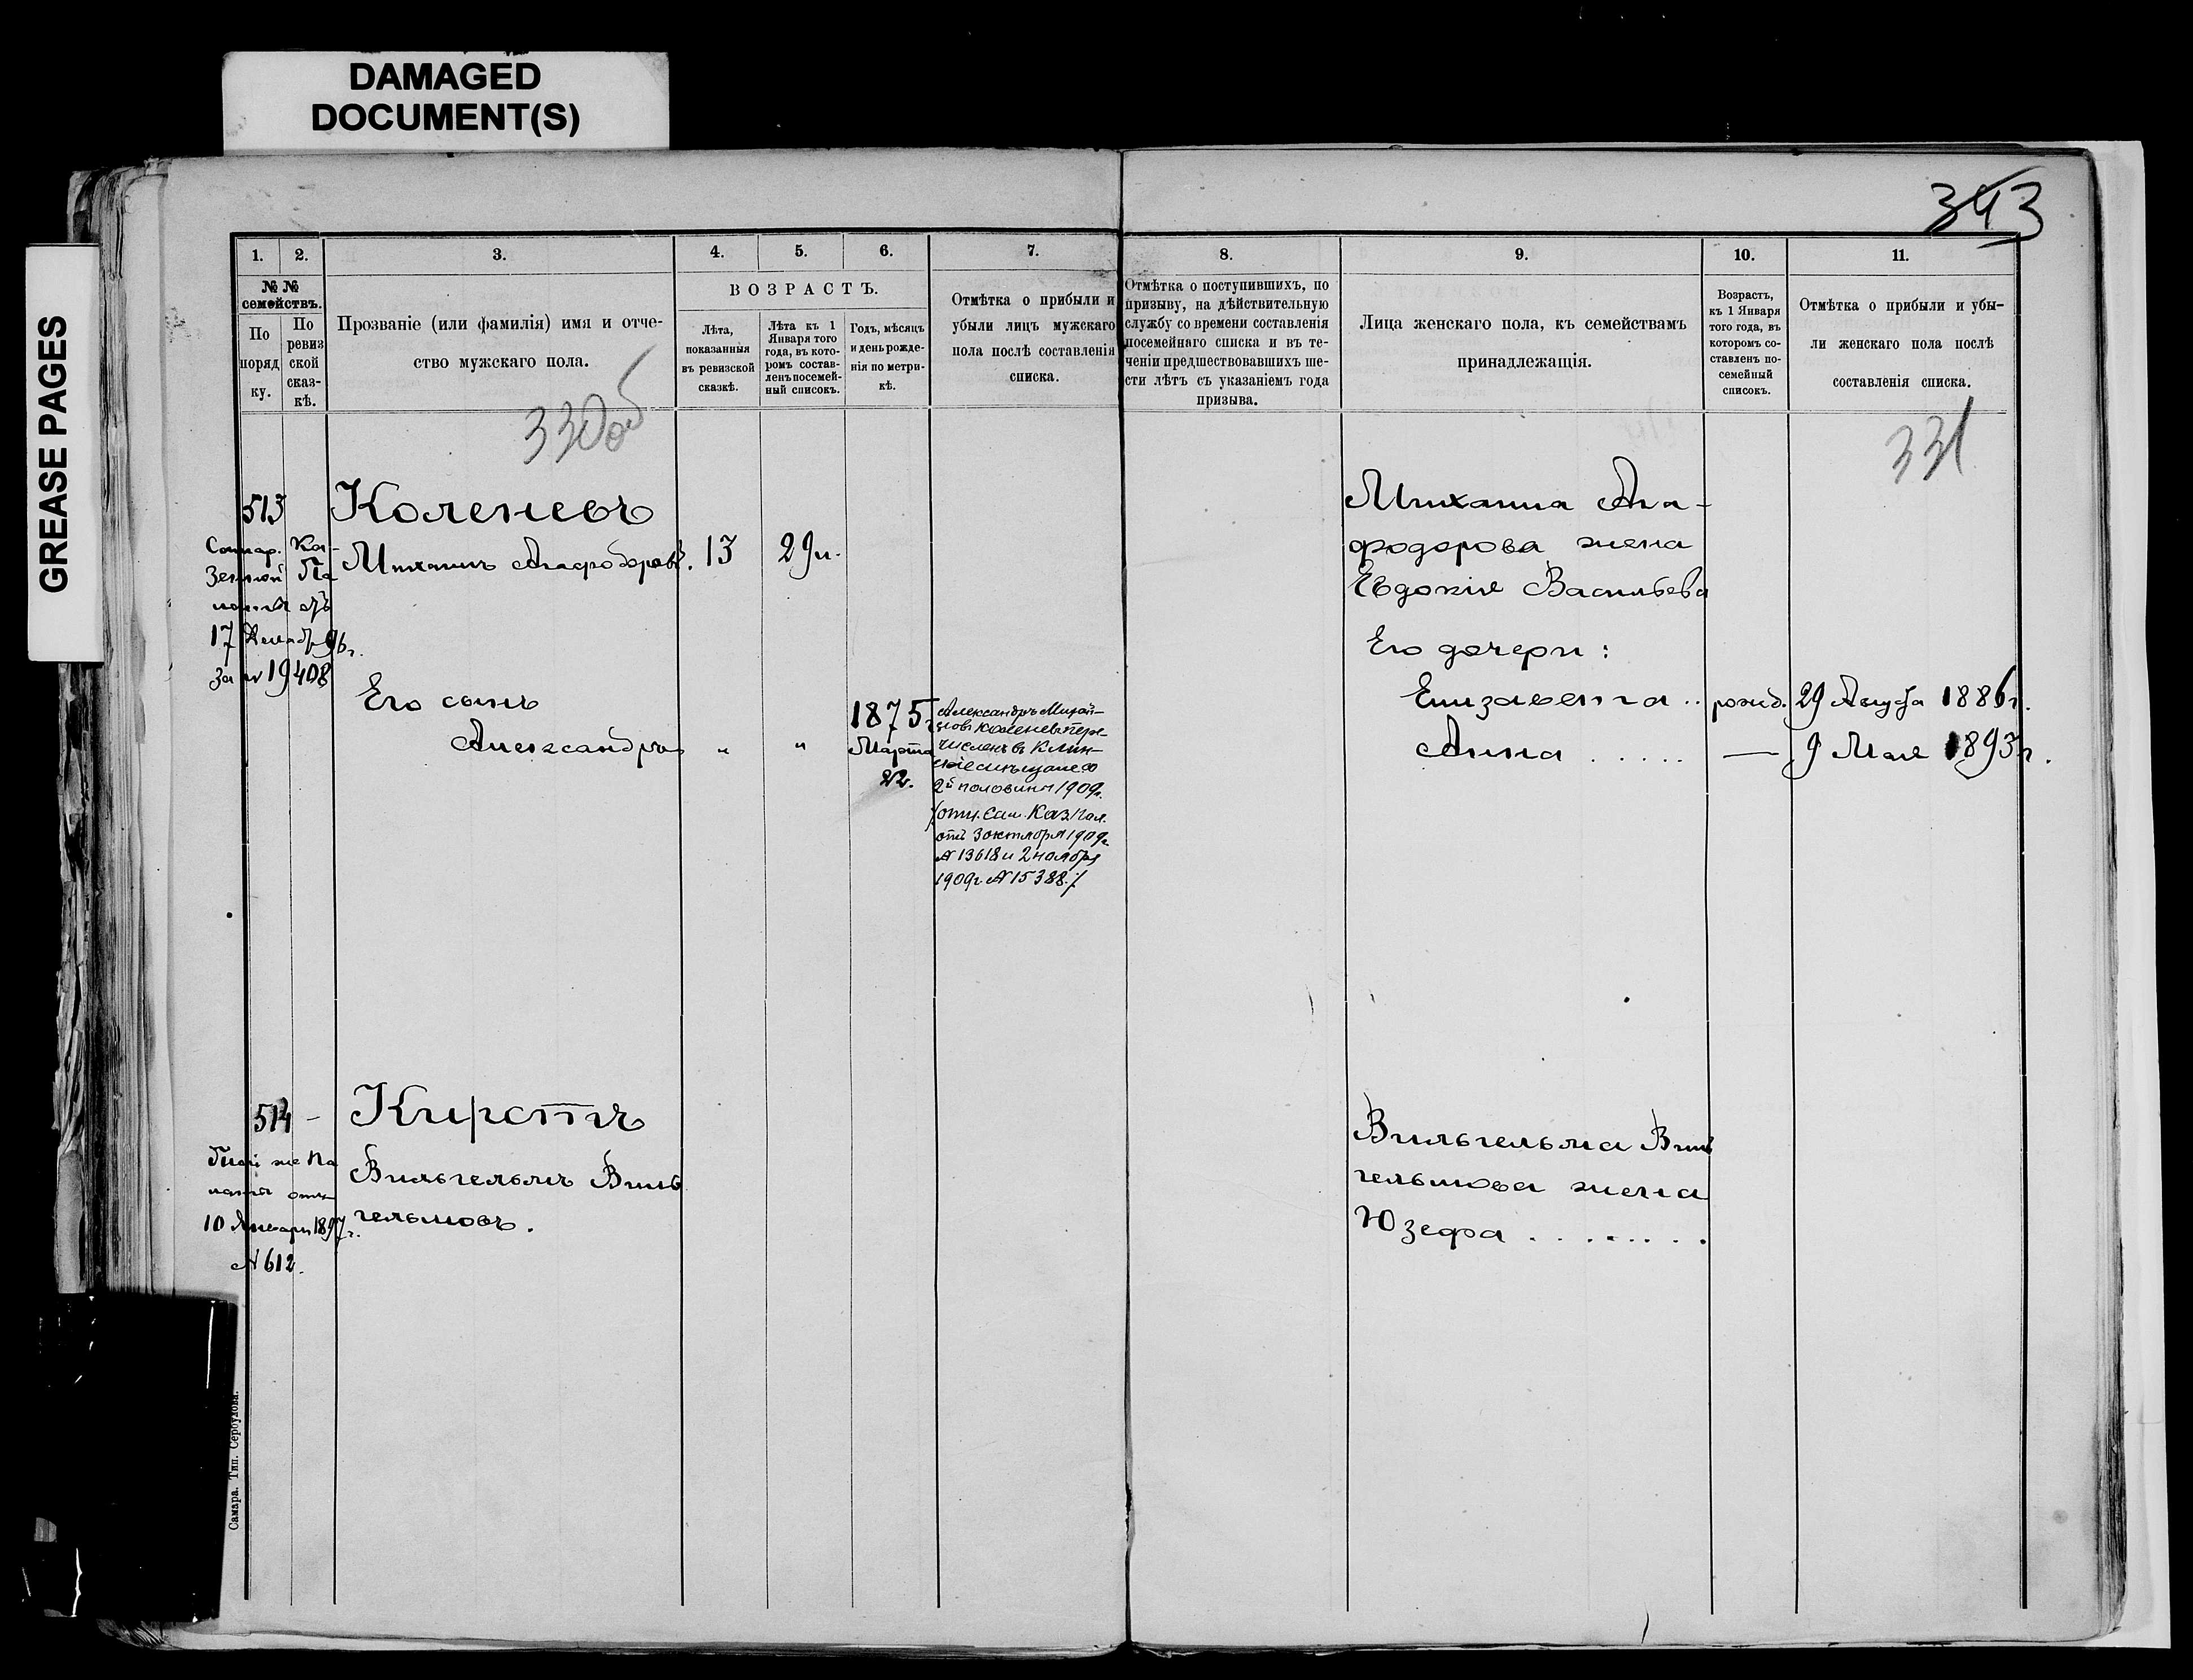 DAMAGED
DOCUMENT(S)
GREASE PAGES
343
1. 2. 3. 4. 5. 6. 7. 8. 9. 10. 11.
№ №
семействъ.
По
поряд
ку.
По
ревиз
ской
сказ-
кѣ.
Прозваніе (или фамилія) имя и отче-
ство мужскаго пола.
ВОЗРАСТЪ.
Лѣта,
показанныя
въ ревизской
сказкѣ.
Лѣта къ 1
Января того
года, въ кото-
ромъ состав-
ленъ посемей-
ный списокъ.
Годъ, мѣсяцъ
и день рожде-
нія по метри-
кѣ.
Отмѣтка о прибыли и
убыли лицъ мужскаго
пола послѣ составленія
списка.
Отмѣтка о поступившихъ, по
призыву, на дѣйствительную
службу со времени составленія
посемейнаго списка и въ те-
ченіи предшествовавшихъ ше-
сти лѣтъ съ указаніемъ года
призыва.
Лица женскаго пола, къ семействамъ
принадлежащія.
Возрастъ,
къ 1 Января
того года, въ
которомъ со-
ставленъ по-
семейный
списокъ.
Отмѣтка о прибыли и убы-
ли женскаго пола послѣ
составленія списка.
330об
331
513
Ка-
Па
17 Декабр 96 г.
за № 19408
Коленевъ
Михаилъ 13 29 л.
Его сынъ
Александръ " "
1875
Марта
22.
Александръ Михай-
ловъ Коленевъ пере-
численъ въ Клин-
скіе мѣщане со
2й половины 1909 г.
/отн. Сам. Каз. Пал.
отъ 3 октября 1909 г.
№ 13618 и 2 ноября
1909 г. № 15388./
Михаила Ага-
фодорова жена
Евдокія Васильева
Его дочери:
Елизавета .. рожд. 29 Августа 1886 г.
Анна ..... — 9 Мая 1893 г.
514 -
Той же Па
латы отъ
10 Января 1897 г.
№ 612.
Кирстъ
Вильгельмъ Виль
гельмовъ.
Вильгельма Виль
гельмова жена
Юзефа ........
Самара. Тип. Сербулова.